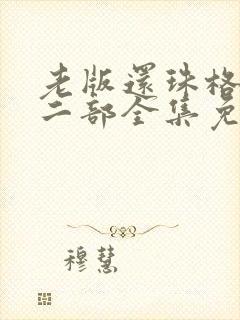 老版還珠格
二部全集免
穆慧